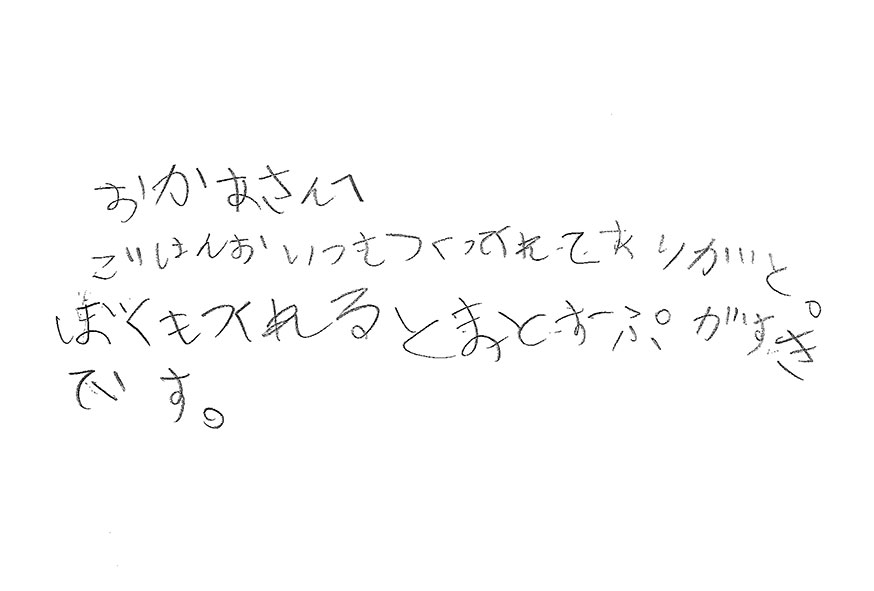 おかあさんへ
ごはんおいつもつくってくれてありがと。
ぼくもつくれるとまとすーぷがすき
です。